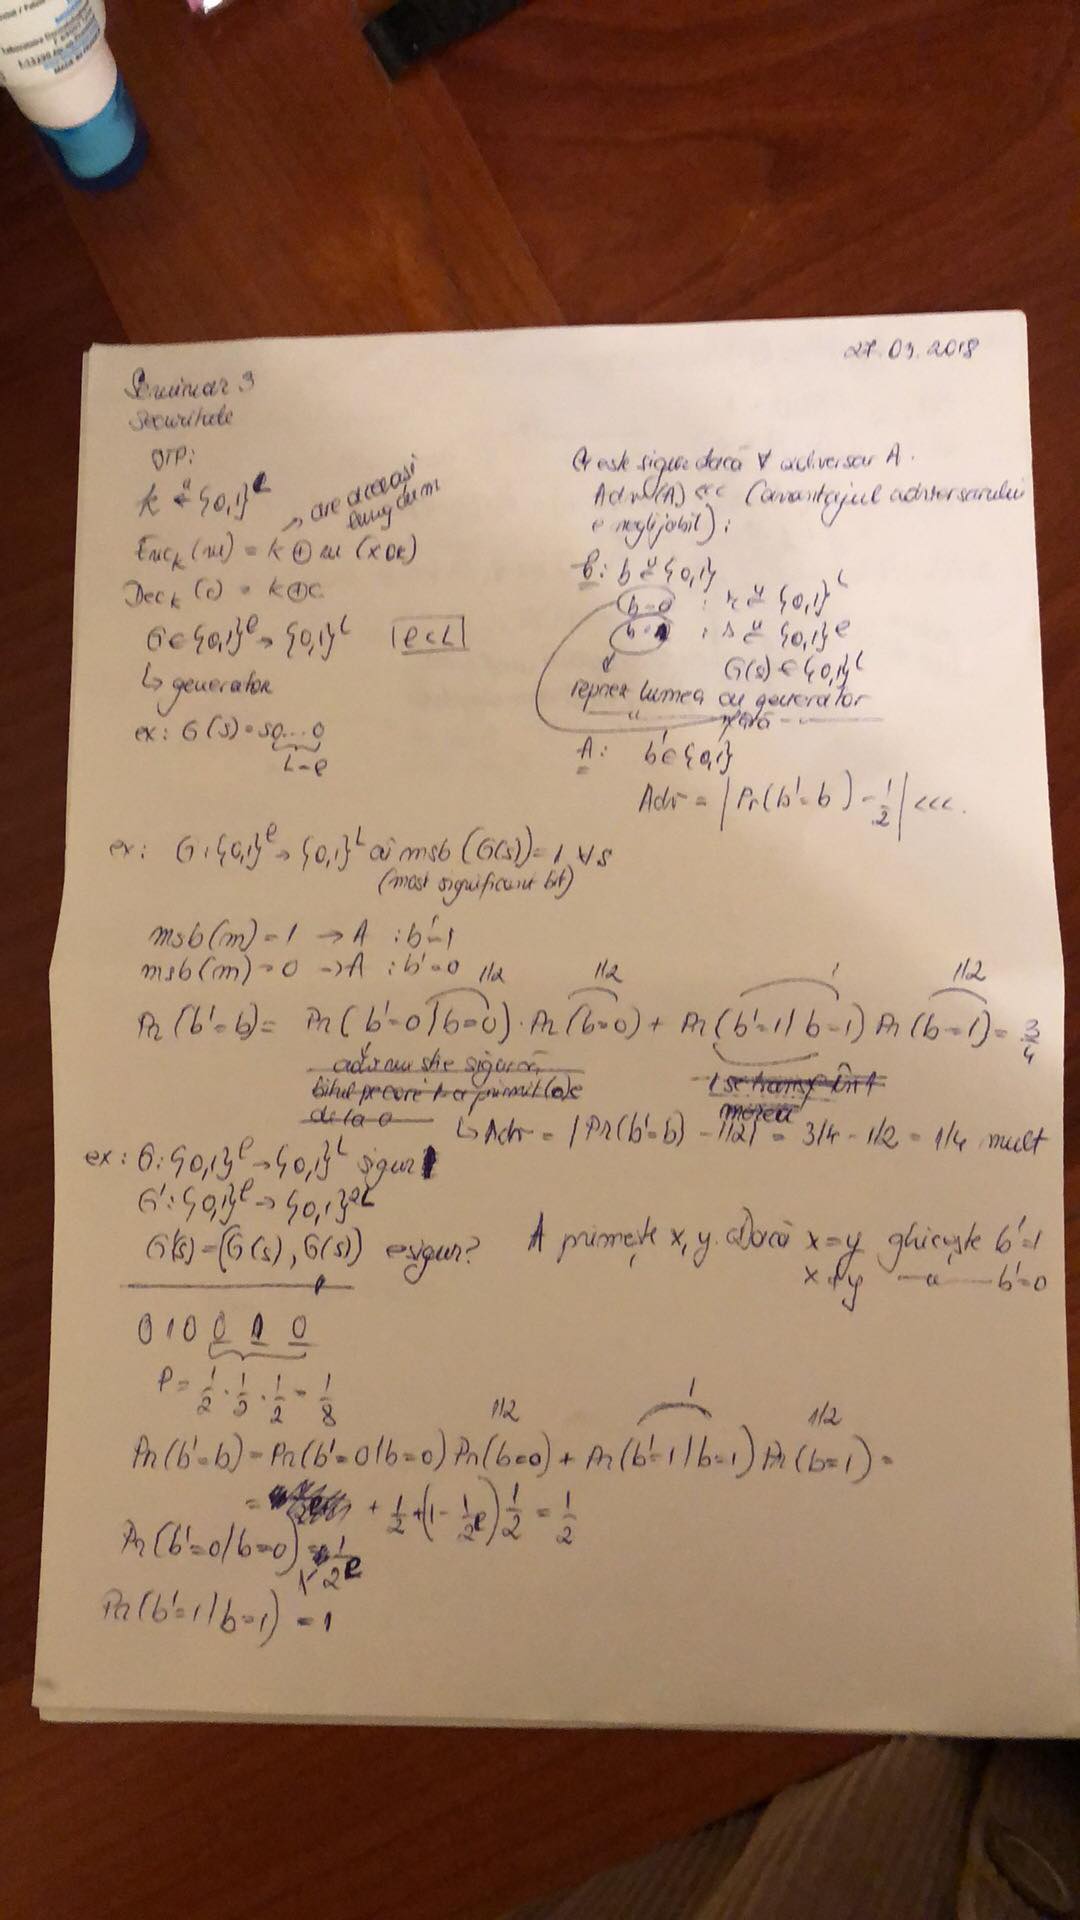 27.03.2018
Seminar 3
Securitate
OTP:
k ←ᵘ {0,1}^l
→ are aceeași lungime cu m
Enc_k(m) = k ⊕ m (XOR)
Dec_k(c) = k⊕c
G ∈ {0,1}^l → {0,1}^L   l < L
↳ generator
ex: G(s) = s0...0
L-l
G este sigur dacă ∀ adversar A.
Adv(A) <<< (avantajul adversarului
e neglijabil):
b ←ᵘ {0,1}
b=0 : r ←ᵘ {0,1}^L
b=1 : s ←ᵘ {0,1}^l
G(s) ∈ {0,1}^L
reprez lumea cu generator
—"— fără ——
A: b' ∈ {0,1}
Adv = |Pr(b'=b) - 1/2| <<<.
ex: G: {0,1}^l → {0,1}^L aî msb(G(s)) = 1 ∀s
(most significant bit)
msb(m) = 1 → A : b'=1
msb(m) = 0 → A : b'=0
1/2 1/2 1 1/2
Pr(b'=b) = Pr(b'=0|b=0)·Pr(b=0) + Pr(b'=1|b=1) Pr(b=1) = 3/4
↳ Adv = |Pr(b'=b) - 1/2| = 3/4 - 1/2 = 1/4 mult
ex: G: {0,1}^l → {0,1}^L sigur
G': {0,1}^l → {0,1}^2L
G'(s) = (G(s), G(s)) e sigur?
A primește x, y. Dacă x=y ghicește b'=1
x≠y —"— b'=0
0 1 0 0 1 0
P = 1/2 · 1/2 · 1/2 = 1/8
1/2 1 1/2
Pr(b'=b) = Pr(b'=0|b=0) Pr(b=0) + Pr(b'=1|b=1) Pr(b=1) =
= + 1/2 + (1 - 1/2^l) 1/2 = 1/2
Pr(b'=0|b=0) = 1 - 1/2^l
Pr(b'=1|b=1) = 1